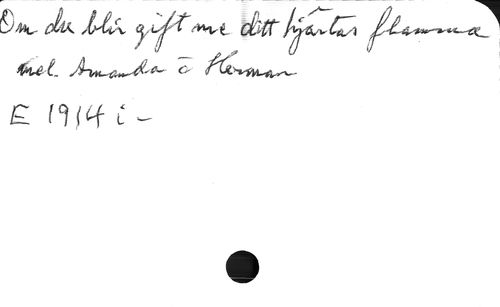 Om du blir gift me ditt hjärtas flamma
mel. Amanda o Herman
E 1914 i -